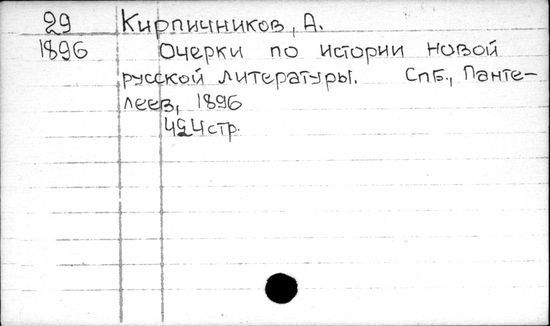 29 Кирпичников, А.
1896 Очерки по истории новой
русской литературы. СПБ., Панте-
леев, 1896
стр.